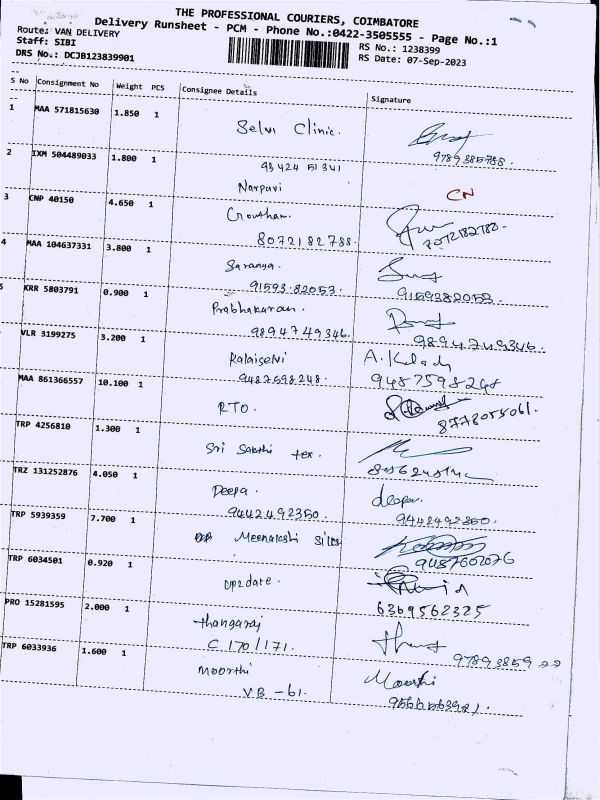 THE PROFESSIONAL COURIERS, COIMBATORE
Delivery Runsheet - PCM - Phone No.:0422-3505555 - Page No.:1
Route: VAN DELIVERY
Staff: SIBI
RS No.: 1238399
DRS No.: DCJB123839901
RS Date: 07-Sep-2023
S No Consignment No Weight PCS Consignee Details Signature
1 MAA 571815630 1.850 1 Selvi Clinic.
9789385788
2 IXM 504489033 1.800 1 93424 51341
Narpavi CN
3 CNP 40150 4.650 1 Gowtham.
8072182788. 7072182782.
4 MAA 104637331 3.800 1 Saranya.
91593 82053. 9159382053
5 KRR 5803791 0.900 1 Prabhakaran.
9894749346. 9894749346.
VLR 3199275 3.200 1 Kalaiselvi
9487598248. 9487598248
MAA 861366557 10.100 1 RTO.
8778055061.
TRP 4256810 1.300 1 Sri Sakthi tex.
TRZ 131252876 4.050 1 Deepa. deepa.
9442492350. 9442492350.
TRP 5939359 7.700 1 Meenakshi Silks
TRP 6034501 0.920 1 Up2date.
6369562325
PRO 15281595 2.000 1 thangaraj
C 170/171.
TRP 6033936 1.600 1 Moorthi Moorthi
VB - 61.